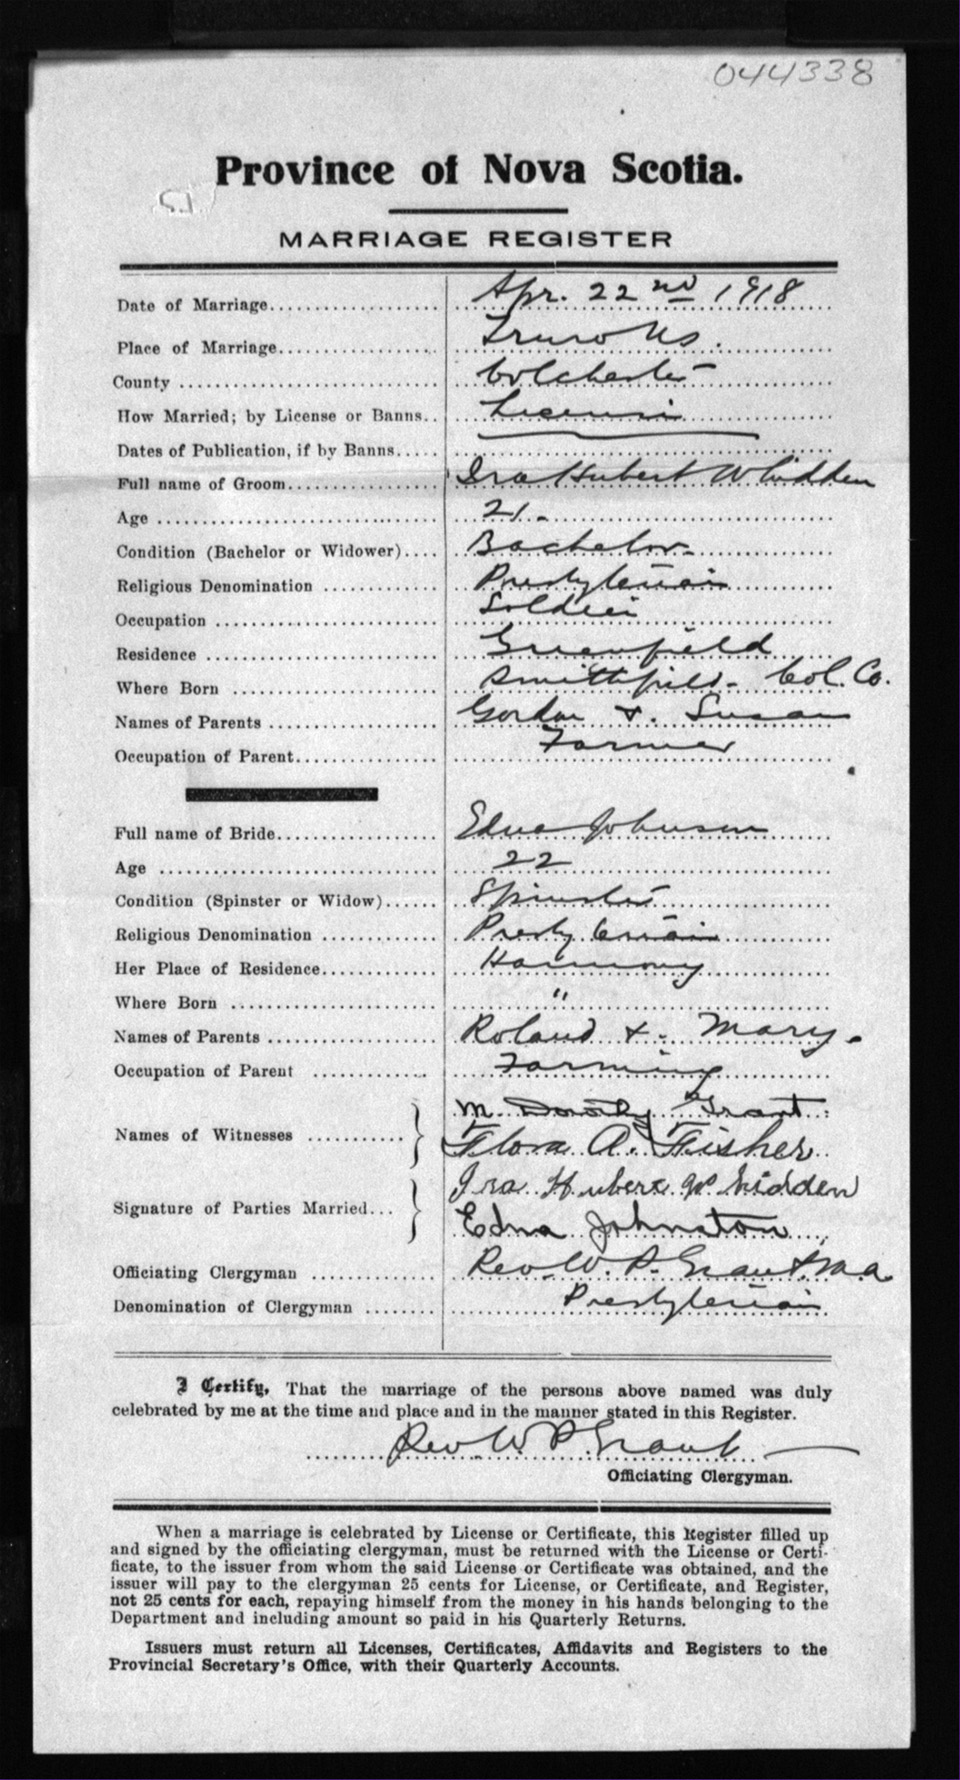 044338
Province of Nova Scotia.
MARRIAGE REGISTER
Date of Marriage Apr. 22nd 1918
Place of Marriage Truro NS.
County Colchester
How Married; by License or Banns License
Dates of Publication, if by Banns
Full name of Groom Ira Hubert Whidden
Age 21.
Condition (Bachelor or Widower) Bachelor
Religious Denomination Presbyterian
Occupation Soldier
Residence Greenfield
Where Born Smithfield - Col. Co.
Names of Parents Gordon &. Susan
Occupation of Parent Farmer
Full name of Bride Edna Johnson
Age 22
Condition (Spinster or Widow) Spinster
Religious Denomination Presbyterian
Her Place of Residence Harmony
Where Born "
Names of Parents Roland &. Mary.
Occupation of Parent Farming
M. Dorothy Grant.
Names of Witnesses
Flora A. Fisher
Ira Hubert Whidden
Signature of Parties Married
Edna Johnston
Officiating Clergyman Rev. W. P. Grant
Denomination of Clergyman Presbyterian
I Certify, That the marriage of the persons above named was duly
celebrated by me at the time and place and in the manner stated in this Register.
Rev W P Grant
Officiating Clergyman.
When a marriage is celebrated by License or Certificate, this Register filled up
and signed by the officiating clergyman, must be returned with the License or Certi-
ficate, to the issuer from whom the said License or Certificate was obtained, and the
issuer will pay to the clergyman 25 cents for License, or Certificate, and Register,
not 25 cents for each, repaying himself from the money in his hands belonging to the
Department and including amount so paid in his Quarterly Returns.
Issuers must return all Licenses, Certificates, Affidavits and Registers to the
Provincial Secretary's Office, with their Quarterly Accounts.